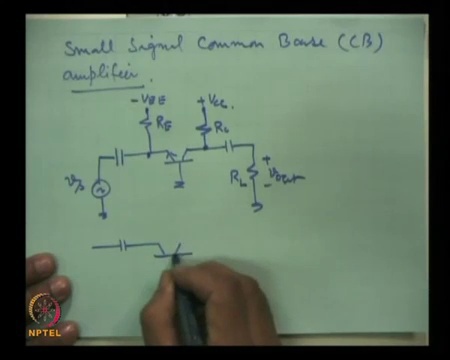 Small Signal Common Base (CB)
amplifier.
- VEE
+ VCC
RE
RC
vs
RL
+
vout
-
NPTEL